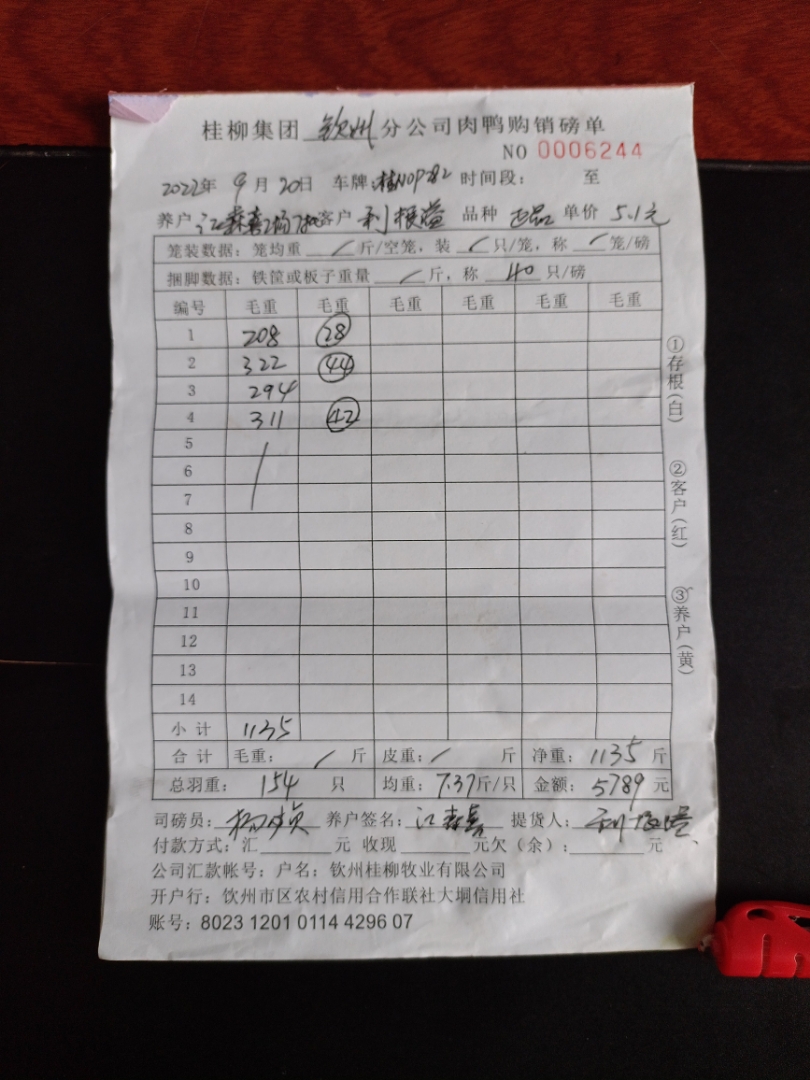 桂柳集团 钦州 分公司肉鸭购销磅单
NO 0006244
2022年 9月 20日 车牌: 时间段: 至
养户 客户 利 品种 正品 单价 5.1元
笼装数据: 笼均重 / 斤/空笼, 装 / 只/笼, 称 / 笼/磅
捆脚数据: 铁筐或板子重量 / 斤, 称 40 只/磅
编号 毛重 毛重 毛重 毛重 毛重 毛重
1 208 28
2 322 44
3 294
4 311 42
5
6
7
8
9
10
11
12
13
14
小计 1135
合计 毛重: / 斤 皮重: / 斤 净重: 1135 斤
总羽重: 154 只 均重: 7.37斤/只 金额: 5789 元
司磅员: 杨 养户签名: 江森喜 提货人: 利
付款方式: 汇 元 收现 元欠(余): 元
公司汇款帐号: 户名: 钦州桂柳牧业有限公司
开户行: 钦州市区农村信用合作联社大垌信用社
账号: 8023 1201 0114 4296 07
①存根(白)
②客户(红)
③养户(黄)